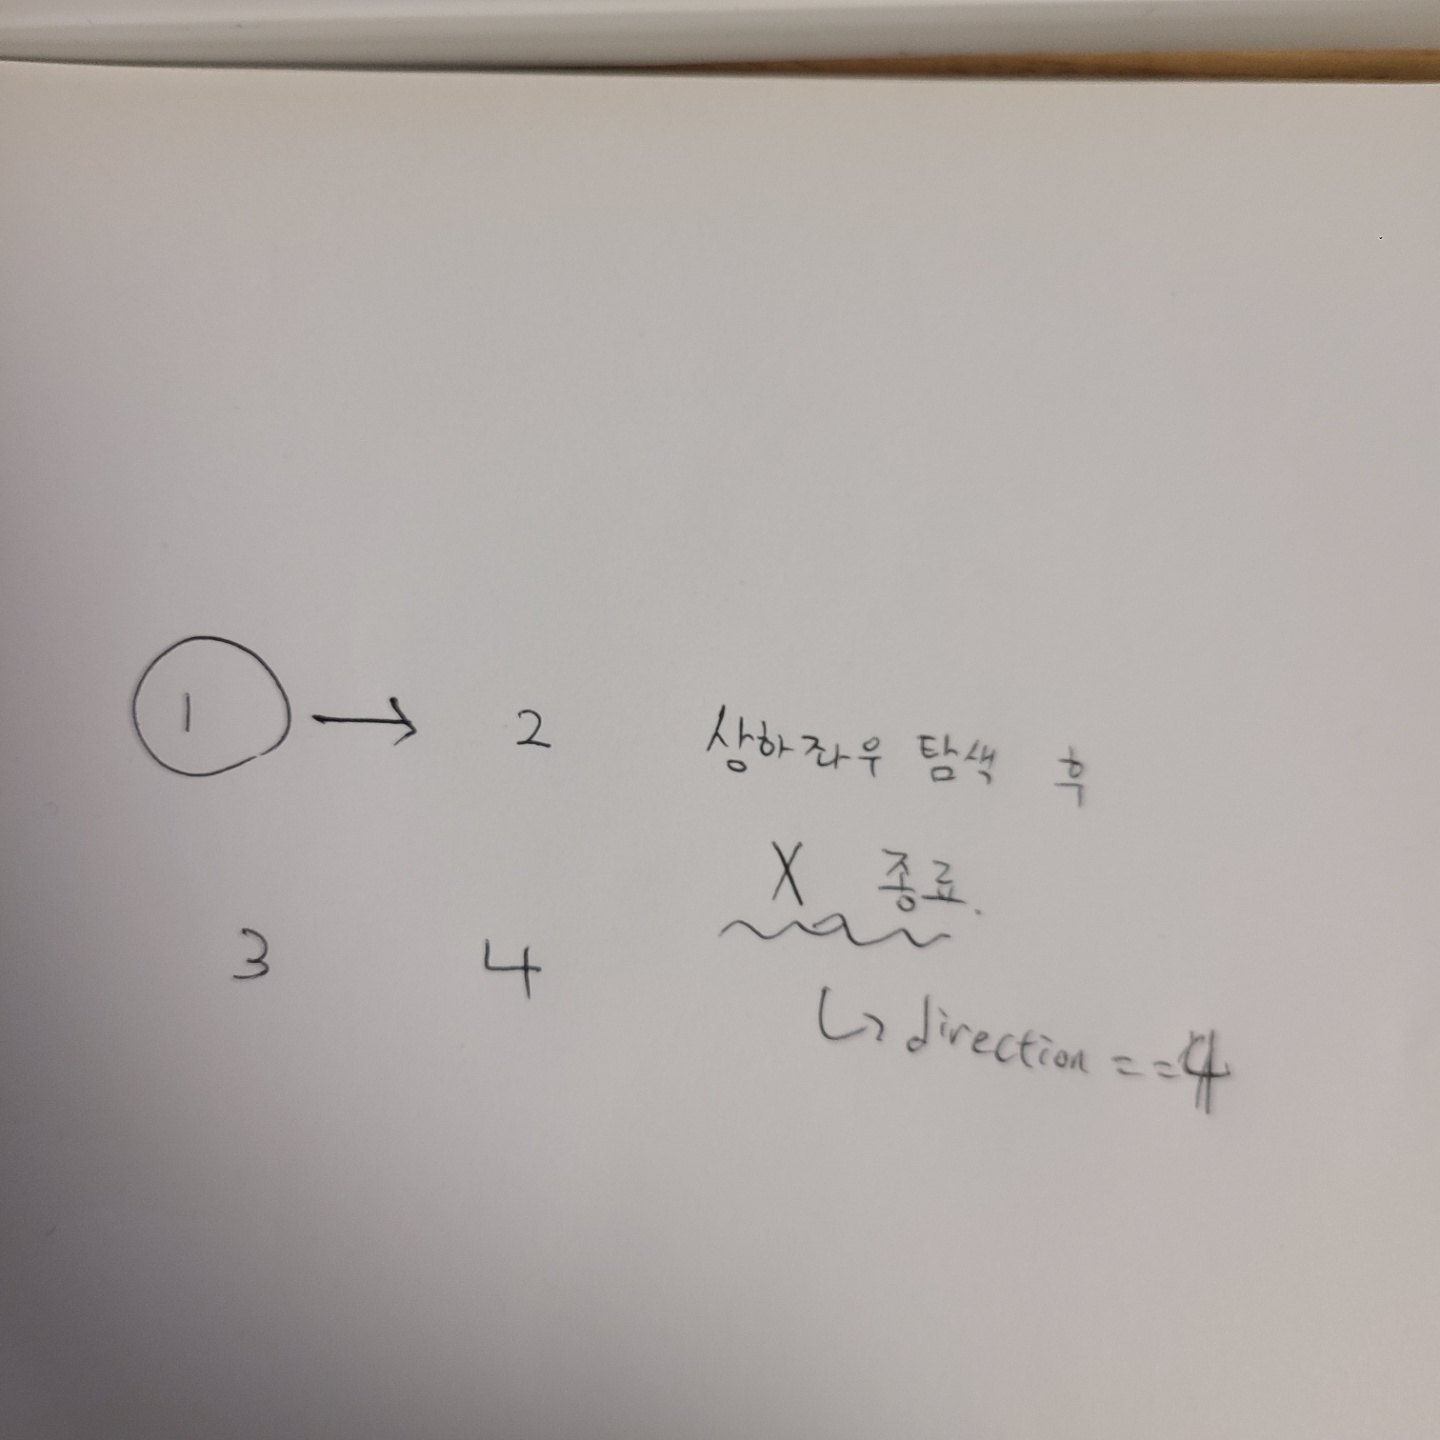 1 → 2 상하좌우 탐색 후
X 종료.
3 4
↳ direction == 4